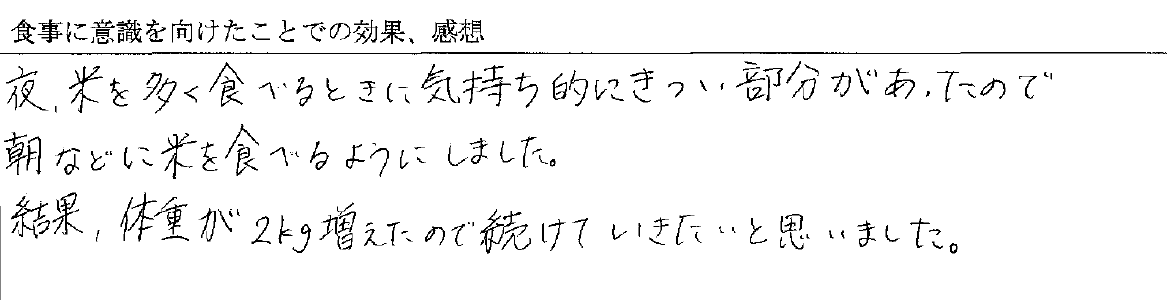 食事に意識を向けたことでの効果、感想
夜、米を多く食べるときに気持ち的にきつい部分があったので
朝などに米を食べるようにしました。
結果、体重が2kg増えたので続けていきたいと思いました。